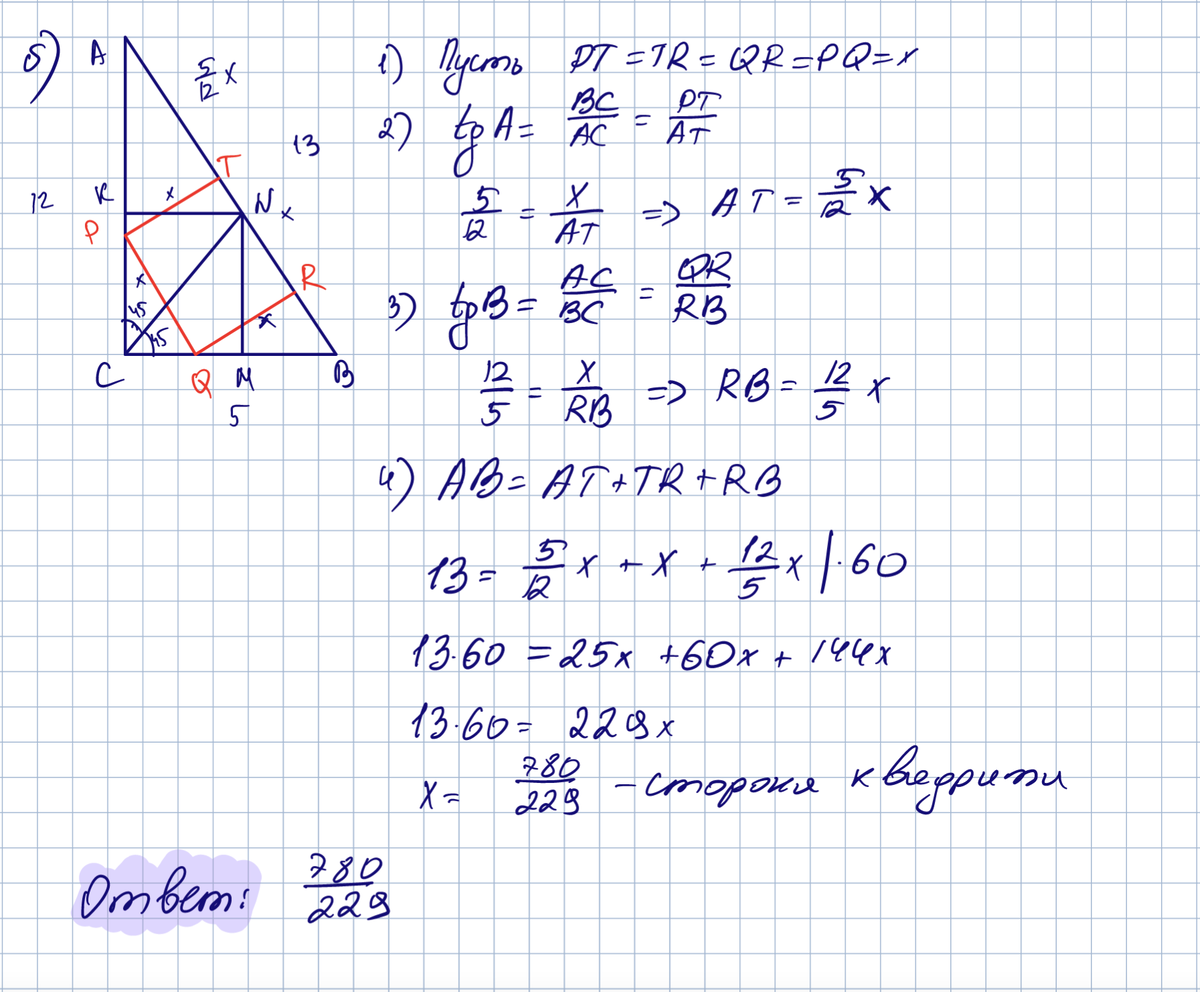 б)
A
5/12 x
13
T
12
K
x
N
x
P
x
R
45
45
x
C
Q
M
B
5
1) Пусть PT = TR = QR = PQ = x
2) tg A = BC/AC = PT/AT
5/12 = x/AT => AT = 5/12 x
3) tg B = AC/BC = QR/RB
12/5 = x/RB => RB = 12/5 x
4) AB = AT + TR + RB
13 = 5/12 x + x + 12/5 x |·60
13·60 = 25x + 60x + 144x
13·60 = 229x
x = 780/229 – сторона квадрата
Ответ: 780/229